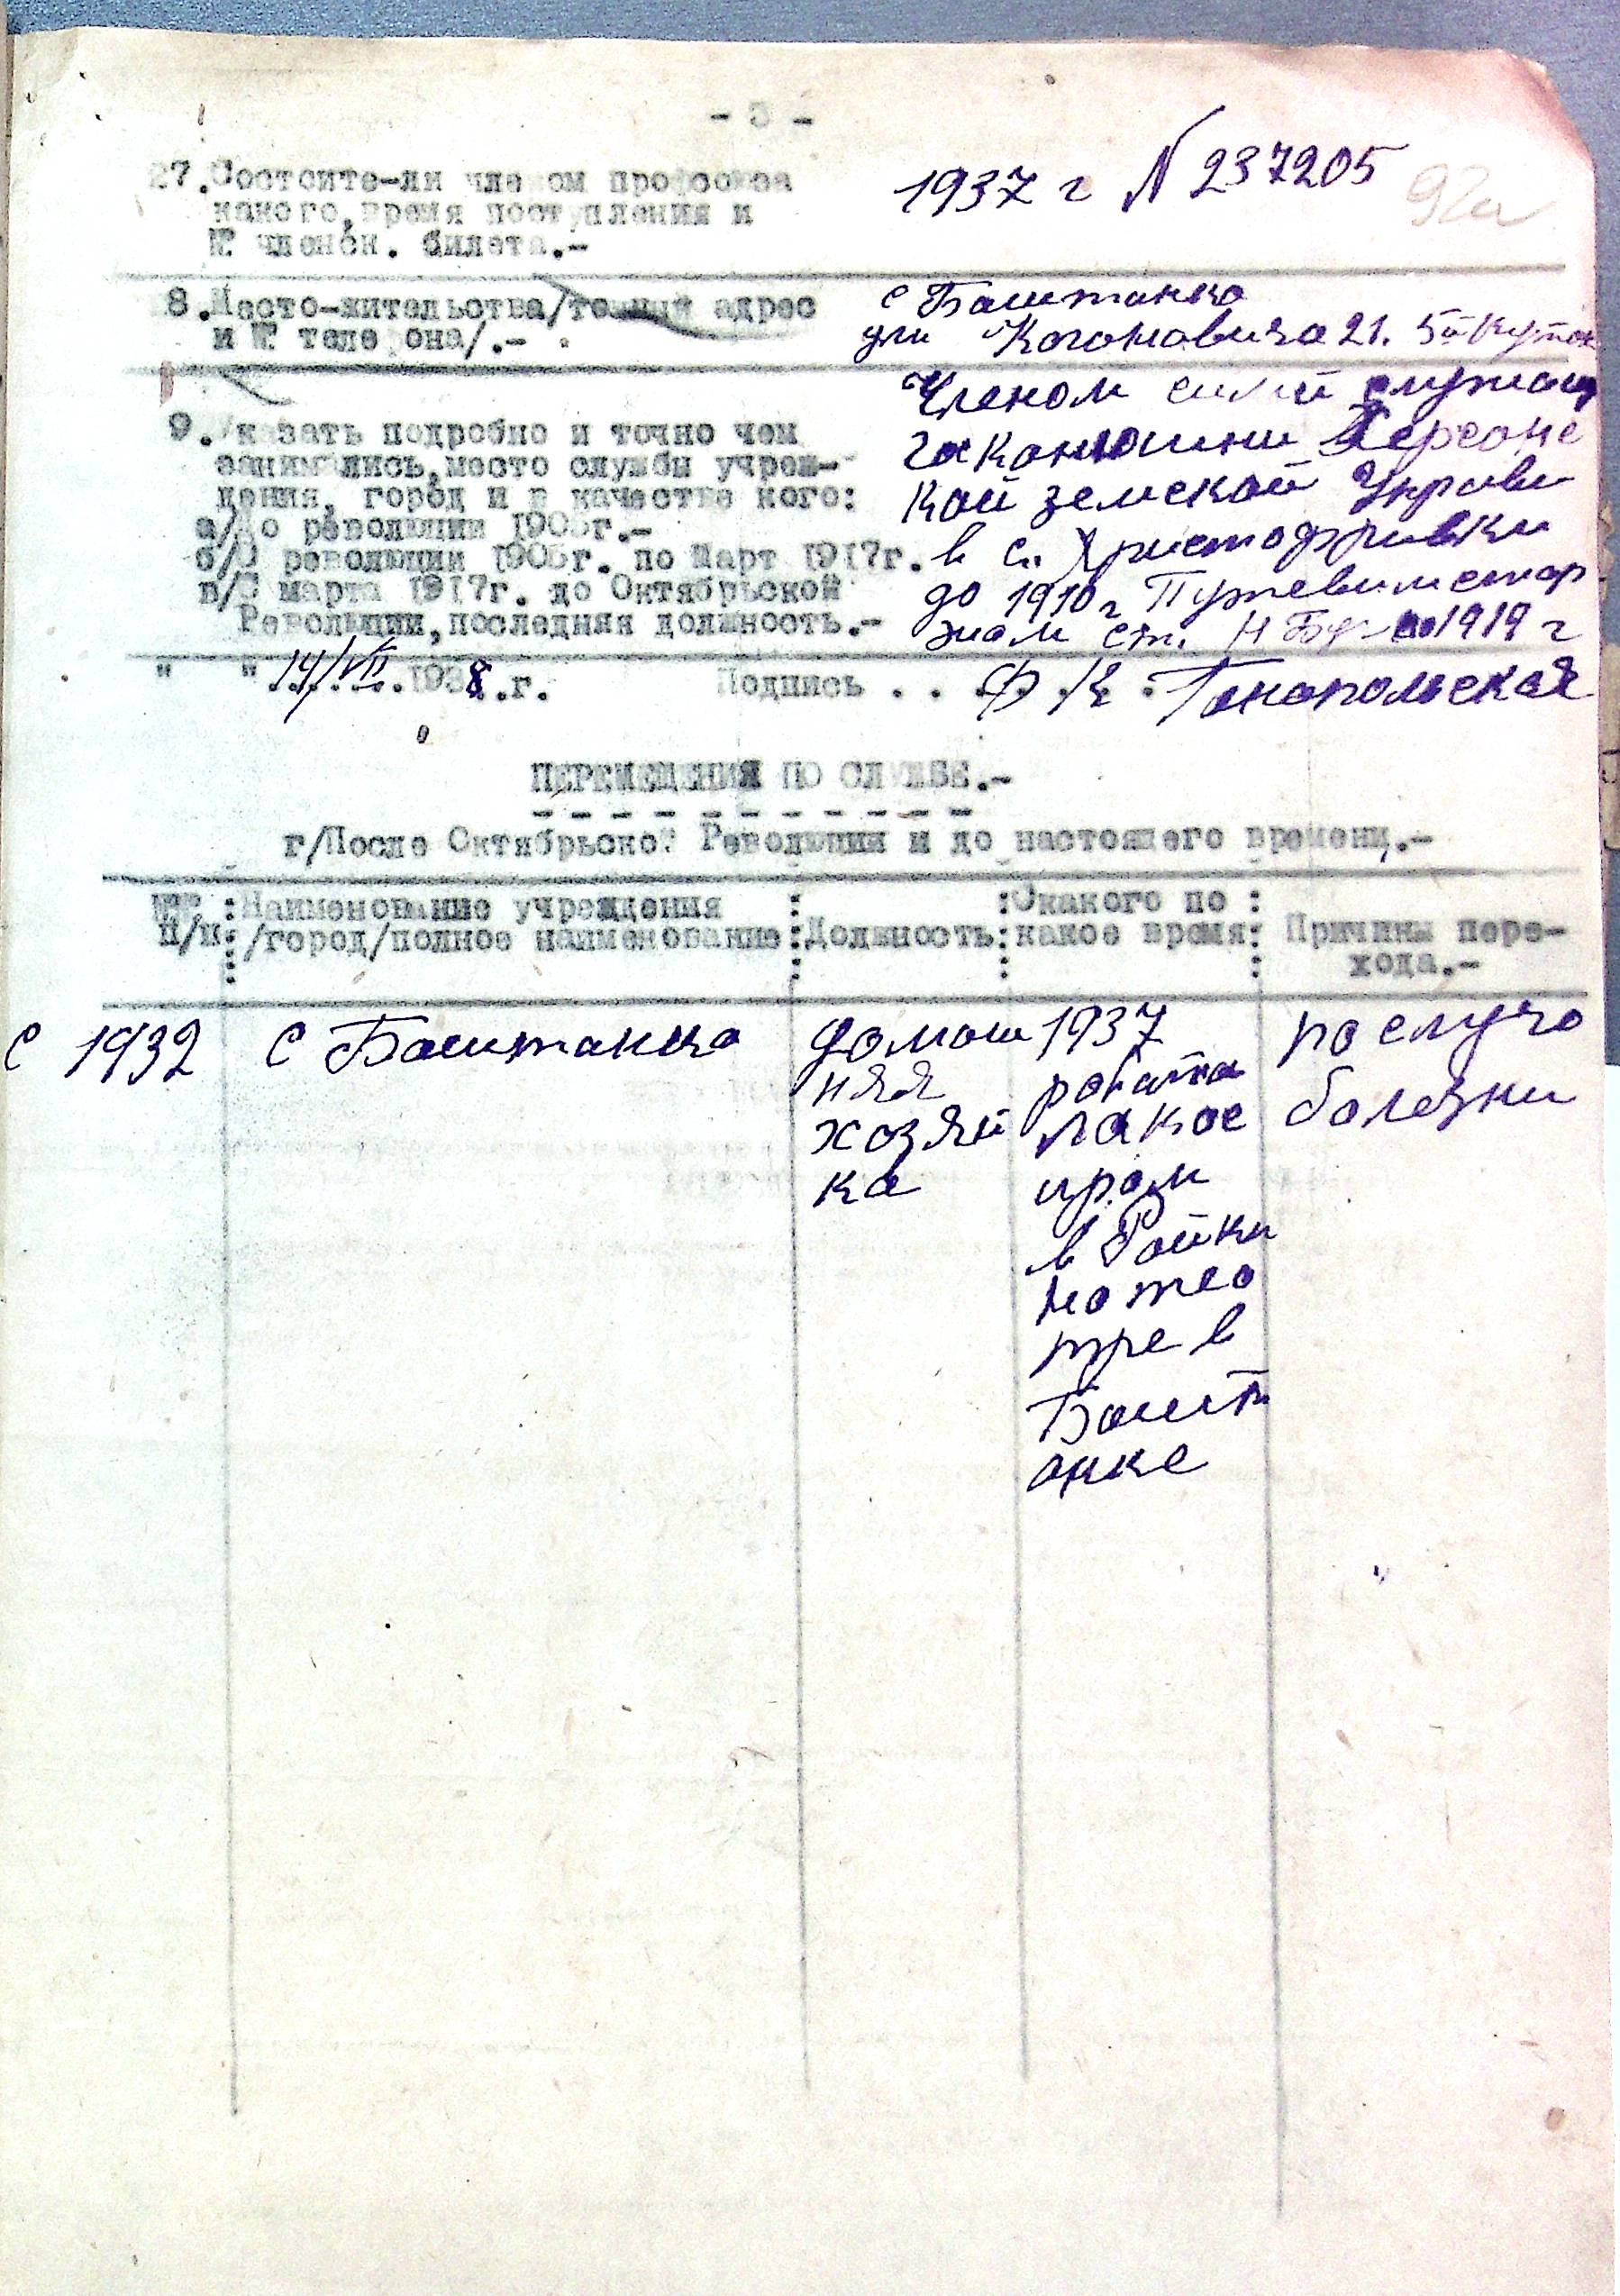 - 3 -
27. Состоите-ли членом профсоюза
какого, время поступления и
№ членск. билета.-
1937 г № 237205
92а
8. Место-жительства/точный адрес
и № телефона/.-
с Баштанка
ули Когоновича 21. 5й Куток
9. Указать подробно и точно чем
занимались, место службы учреж-
дения, город и в качестве кого:
а/До революции 1905г.-
б/С революции 1905г. по Март 1917г.
в/С марта 1917г. до Октябрьской
Революции, последняя должность.-
Членом служащ
Херсонс
кой земской Управи
в с. Христофрывки
до 1910 г
ст. 1919 г
" " 14/VII 1938.г. Подпись . . Ф. К. Гонопольская
ПЕРЕМЕЩЕНИЯ ПО СЛУЖБЕ.-
г/После Октябрьской Революции и до настоящего времени.-
№№ п/п: Наименование учреждения /город/полное наименование : Должность : Скакого по какое время : Причины пере-
хода.-
с 1932 с Баштанка домаш 1937 по случо
няя робота болезни
хозяй
ка иром
в Райки
нотео
тре в
Башт
анке